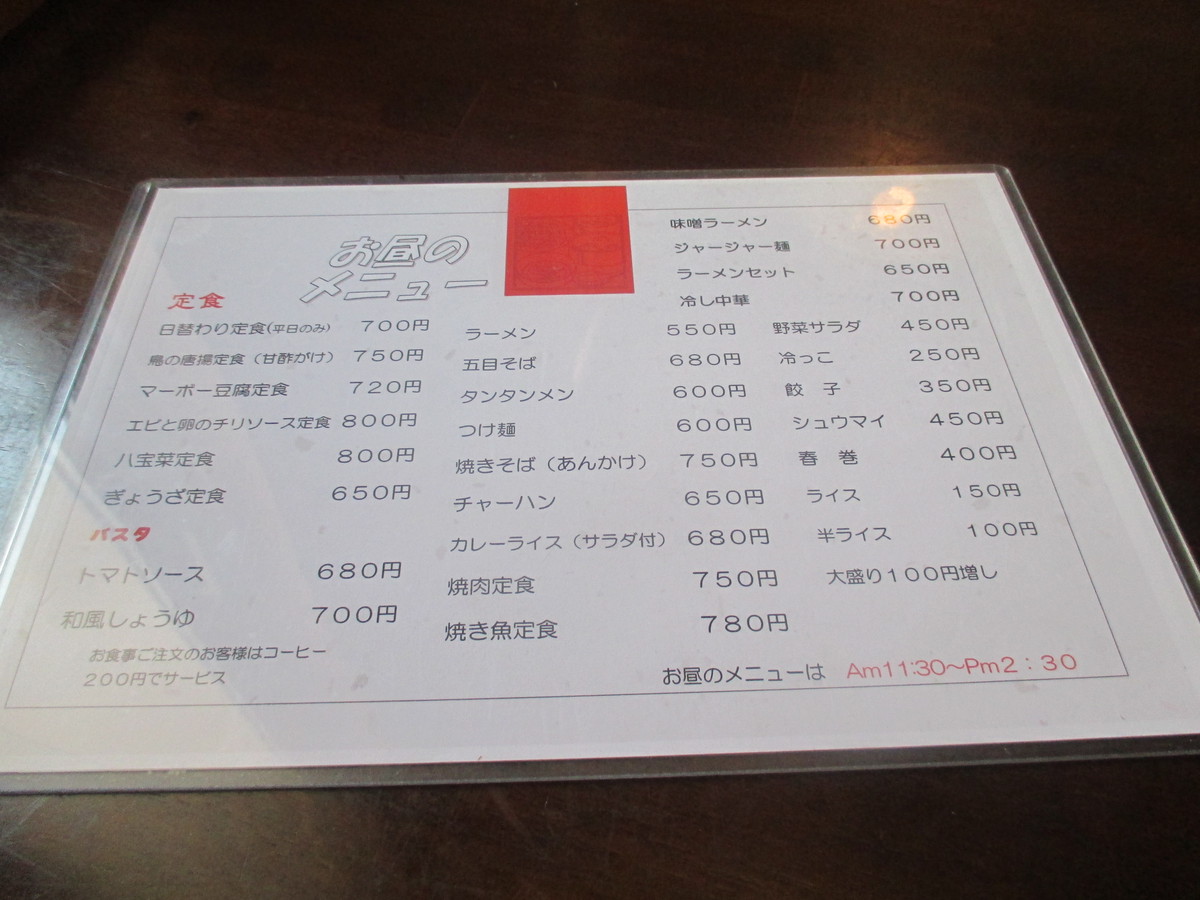 お昼の
メニュー
定食
日替わり定食(平日のみ) 700円
鳥の唐揚定食（甘酢がけ） 750円
マーボー豆腐定食 720円
エビと卵のチリソース定食 800円
八宝菜定食 800円
ぎょうざ定食 650円
パスタ
トマトソース 680円
和風しょうゆ 700円
お食事ご注文のお客様はコーヒー
200円でサービス
ラーメン 550円
五目そば 680円
タンタンメン 600円
つけ麺 600円
焼きそば（あんかけ） 750円
チャーハン 650円
カレーライス（サラダ付） 680円
焼肉定食 750円
焼き魚定食 780円
味噌ラーメン 680円
ジャージャー麺 700円
ラーメンセット 650円
冷し中華 700円
野菜サラダ 450円
冷っこ 250円
餃　子 350円
シュウマイ 450円
春　巻 400円
ライス 150円
半ライス 100円
大盛り１００円増し
お昼のメニューは Am11:30～Pm2：30